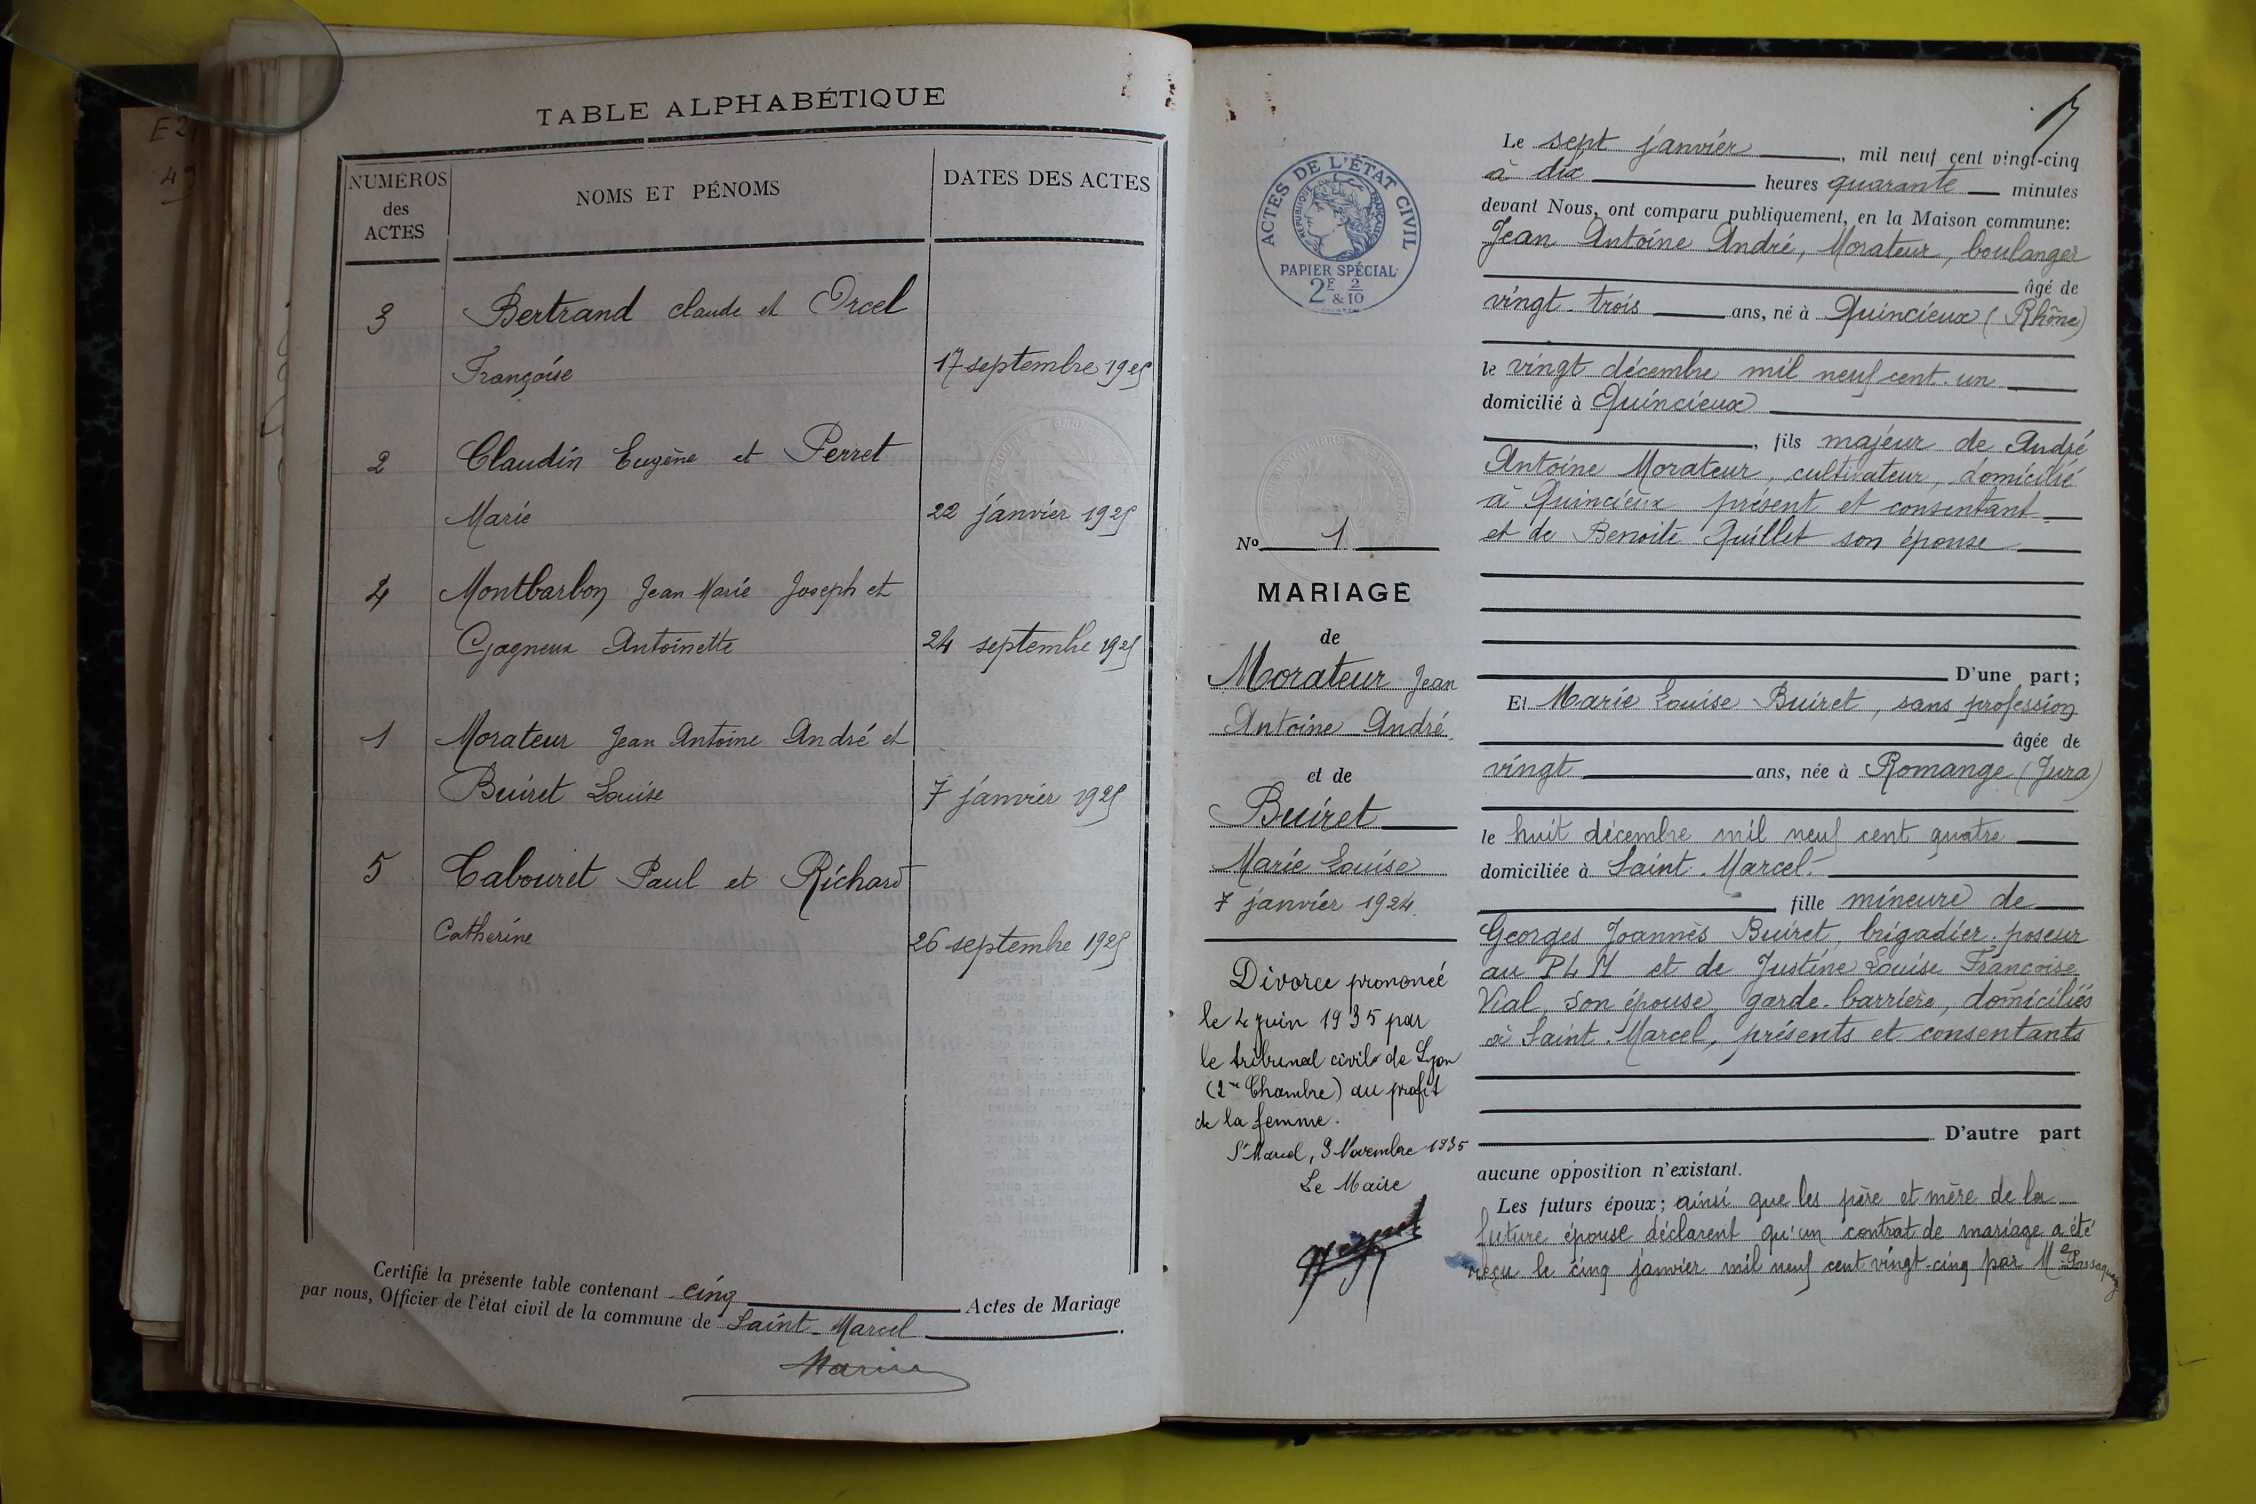 E 2
49
TABLE ALPHABÉTIQUE
NUMÉROS des ACTES
NOMS ET PÉNOMS
DATES DES ACTES
3 Bertrand Claude et Orcel
Françoise 17 septembre 1925
2 Claudin Eugène et Perret
Marie 22 janvier 1925
4 Montbarbon Jean Marie Joseph et
Gagneux Antoinette 24 septembre 1925
1 Morateur Jean Antoine André et
Buiret Louise 7 janvier 1925
5 Tabouret Paul et Richard
Catherine 26 septembre 1925
Certifié la présente table contenant cinq Actes de Mariage
par nous, Officier de l'état civil de la commune de Saint-Marcel.
ACTES DE L'ÉTAT CIVIL
RÉPUBLIQUE FRANÇAISE
PAPIER SPÉCIAL
2F & 2/10
No 1
MARIAGE
de
Morateur Jean
Antoine André
et de
Buiret
Marie Louise
7 janvier 1924.
Divorce prononcé
le 4 juin 1935 par
le tribunal civil de Lyon
(2me Chambre) au profit
de la femme.
St Marcel, 9 Novembre 1935
Le Maire
Le sept janvier, mil neuf cent vingt-cinq
à dix heures quarante minutes
devant Nous, ont comparu publiquement, en la Maison commune:
Jean Antoine André, Morateur, boulanger
âgé de
vingt-trois ans, né à Quincieux (Rhône)
le vingt décembre mil neuf cent un
domicilié à Quincieux
, fils majeur de André
Antoine Morateur, cultivateur, domicilié
à Quincieux présent et consentant
et de Benoite Quillet son épouse
D'une part;
Et Marie Louise Buiret, sans profession
âgée de
vingt ans, née à Romange (Jura)
le huit décembre mil neuf cent quatre
domiciliée à Saint-Marcel
fille mineure de
Georges Joannès Buiret, brigadier-poseur
au PLM et de Justine Louise Françoise
Vial, son épouse, garde-barrière, domiciliés
à Saint-Marcel, présents et consentants
D'autre part
aucune opposition n'existant.
Les futurs époux; ainsi que les père et mère de la
future épouse déclarent qu'un contrat de mariage a été
reçu le cinq janvier mil neuf cent vingt-cinq par Me